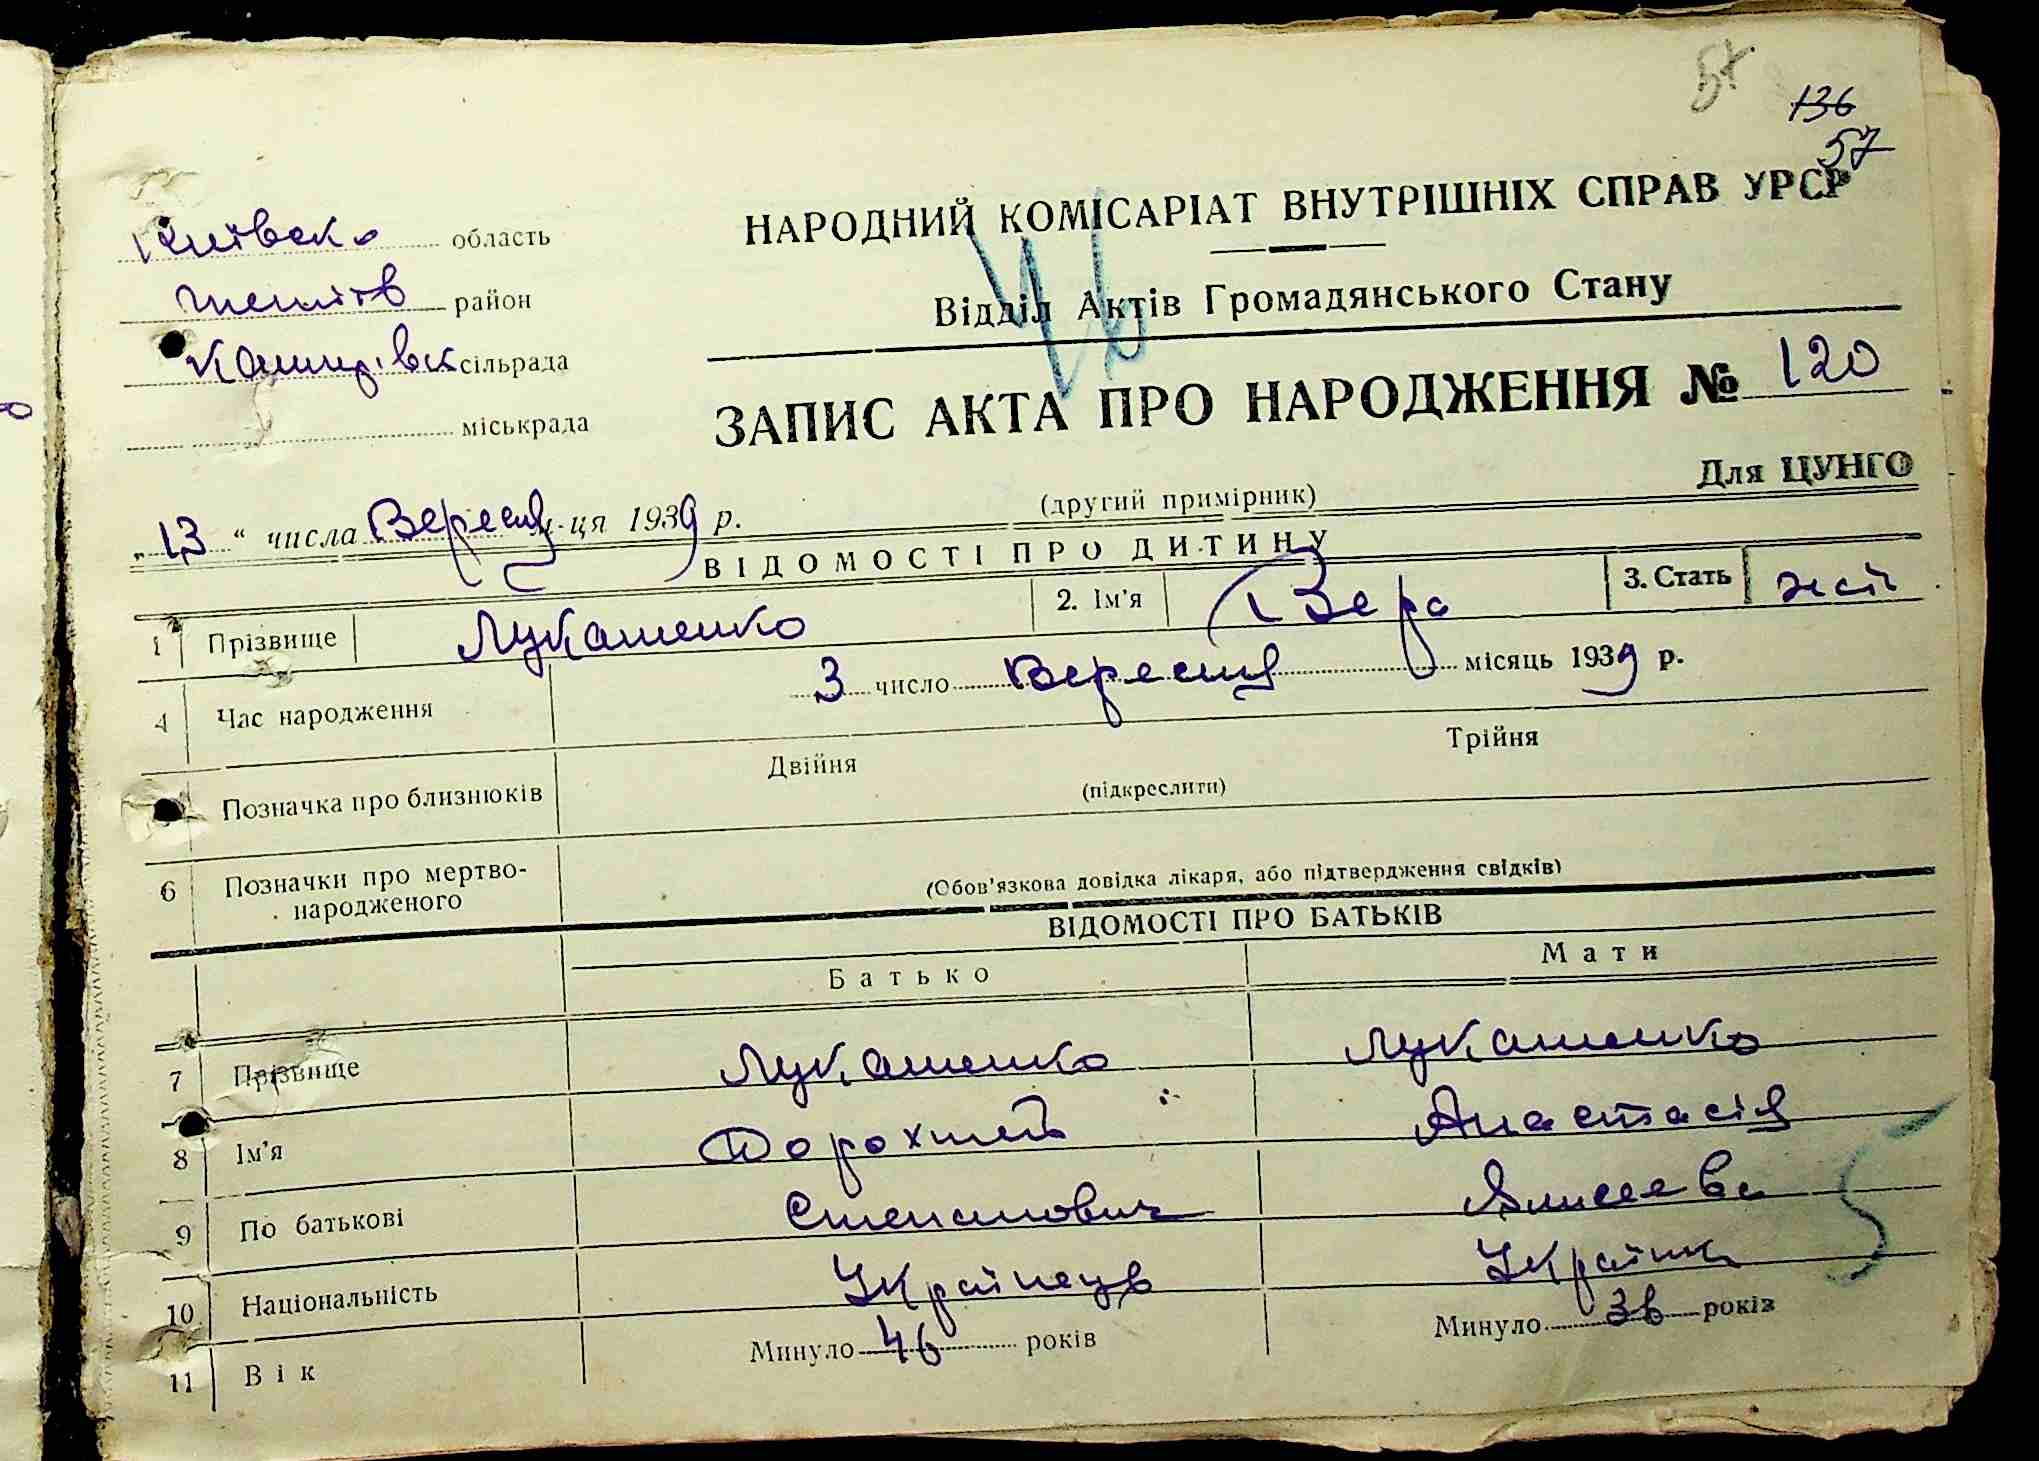 57
136
57
НАРОДНИЙ КОМІСАРІАТ ВНУТРІШНІХ СПРАВ УРСР
Відділ Актів Громадянського Стану
Київсько область
район
сільрада
міськрада
ЗАПИС АКТА ПРО НАРОДЖЕННЯ № 120
(другий примірник) Для ЦУНГО
„13“ числа Вересня м-ця 1939 р.
ВІДОМОСТІ ПРО ДИТИНУ
1 Прізвище Лукашенко 2. Ім'я Вера 3. Стать жін
4 Час народження 3 число Вересня місяць 1939 р.
Позначка про близнюків Двійня (підкреслити) Трійня
6 Позначки про мертво-
народженого (Обов'язкова довідка лікаря, або підтвердження свідків)
ВІДОМОСТІ ПРО БАТЬКІВ
Батько Мати
7 Прізвище Лукашенко Лукашенко
8 Ім'я Дорохтей Анастасія
9 По батькові Степанович
10 Національність Українець Українка
11 Вік Минуло 46 років Минуло 36 років